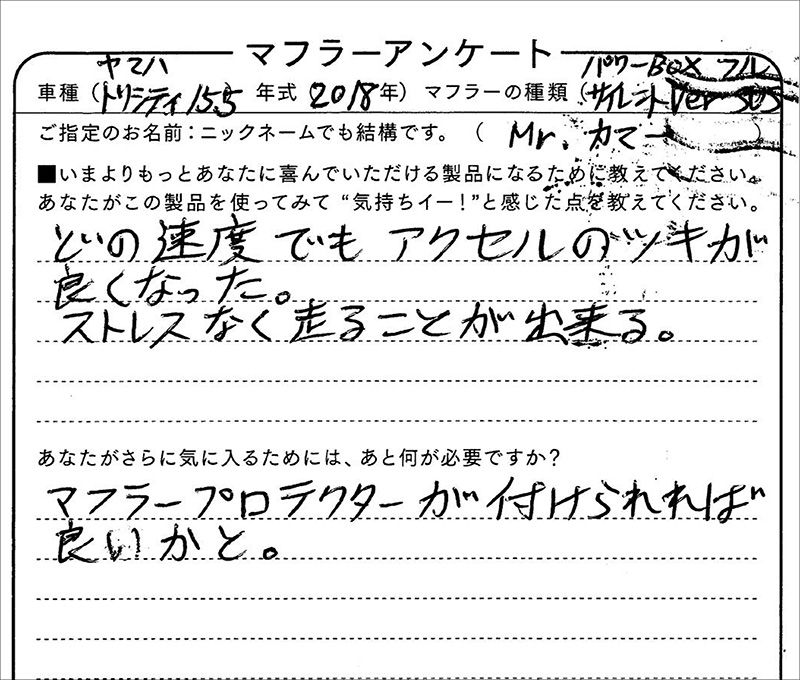 マフラーアンケート
ヤマハ パワーBOX フル
車種（トリシティ155 年式 2018年）マフラーの種類（サイレントVer SUS
ご指定のお名前：ニックネームでも結構です。（ Mr. カマー ）
■いまよりもっとあなたに喜んでいただける製品になるために教えてください。
あなたがこの製品を使ってみて “気持ちイー！”と感じた点を教えてください。
どの速度でもアクセルのツキが
良くなった。
ストレスなく走ることが出来る。
あなたがさらに気に入るためには、あと何が必要ですか？
マフラープロテクターが付けられれば
良いかと。